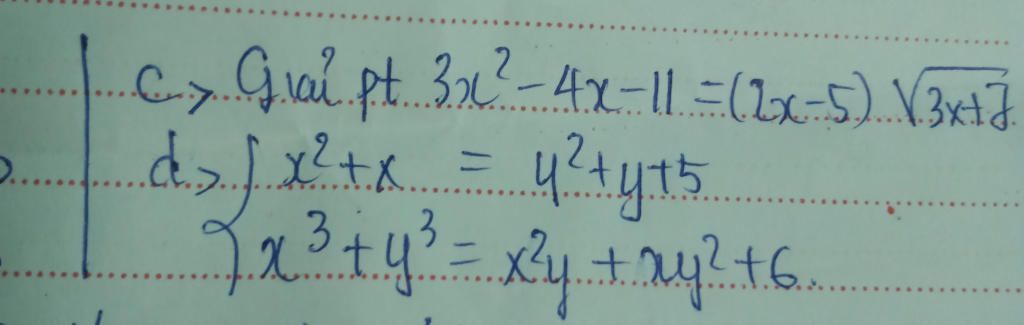 c> Giải pt 3x² - 4x - 11 = (2x - 5) √(3x+7)
d> { x² + x = y² + y + 5
x³ + y³ = x²y + xy² + 6.